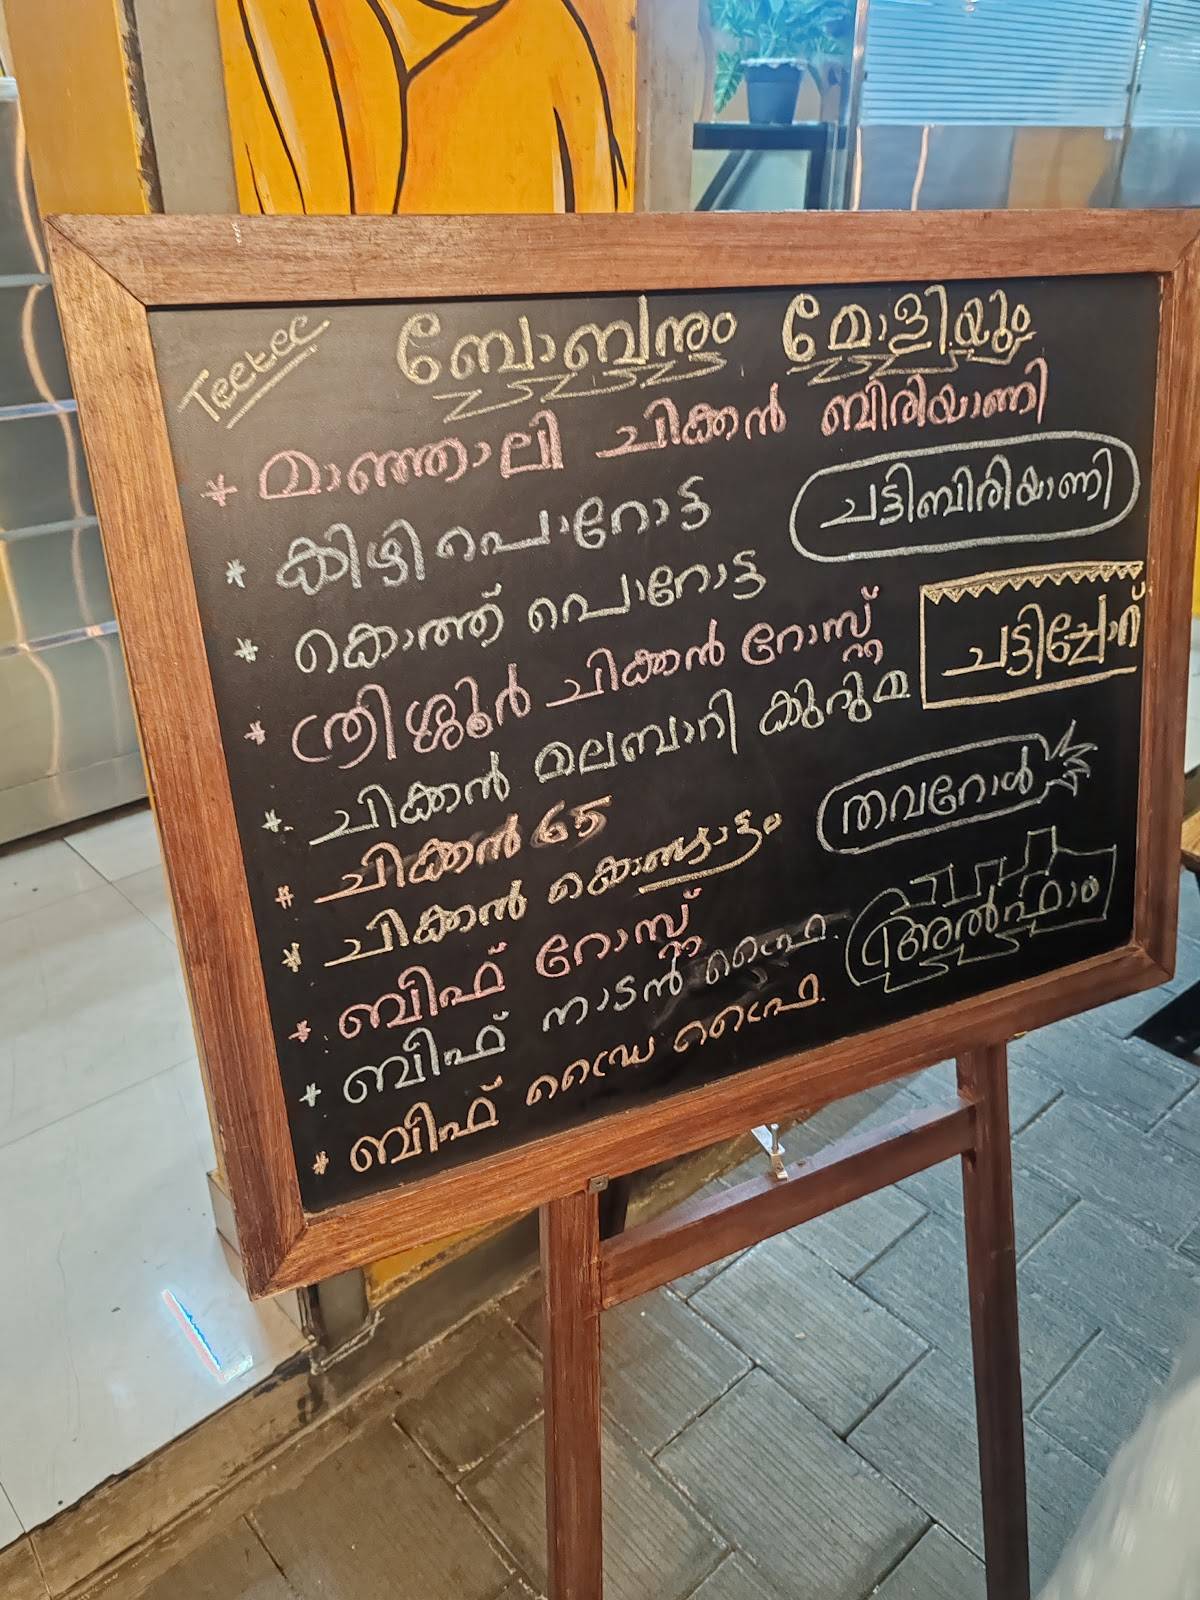 Teetee
ബോബനും മോളിയും
* മാഞ്ഞാലി ചിക്കൻ ബിരിയാണി
* കിഴി പൊറോട്ട
ചട്ടിബിരിയാണി
* കൊത്ത് പൊറോട്ട
* ത്രിശ്ശൂർ ചിക്കൻ റോസ്റ്റ്
ചട്ടിച്ചോറ്
* ചിക്കൻ മലബാറി കുറുമ
* ചിക്കൻ 65
തവറോൾ
* ചിക്കൻ കൊണ്ടാട്ടം
* ബീഫ് റോസ്റ്റ്
അൽഫാം
* ബീഫ് നാടൻ ഫ്രൈ.
* ബീഫ് ഡ്രൈ ഫ്രൈ.